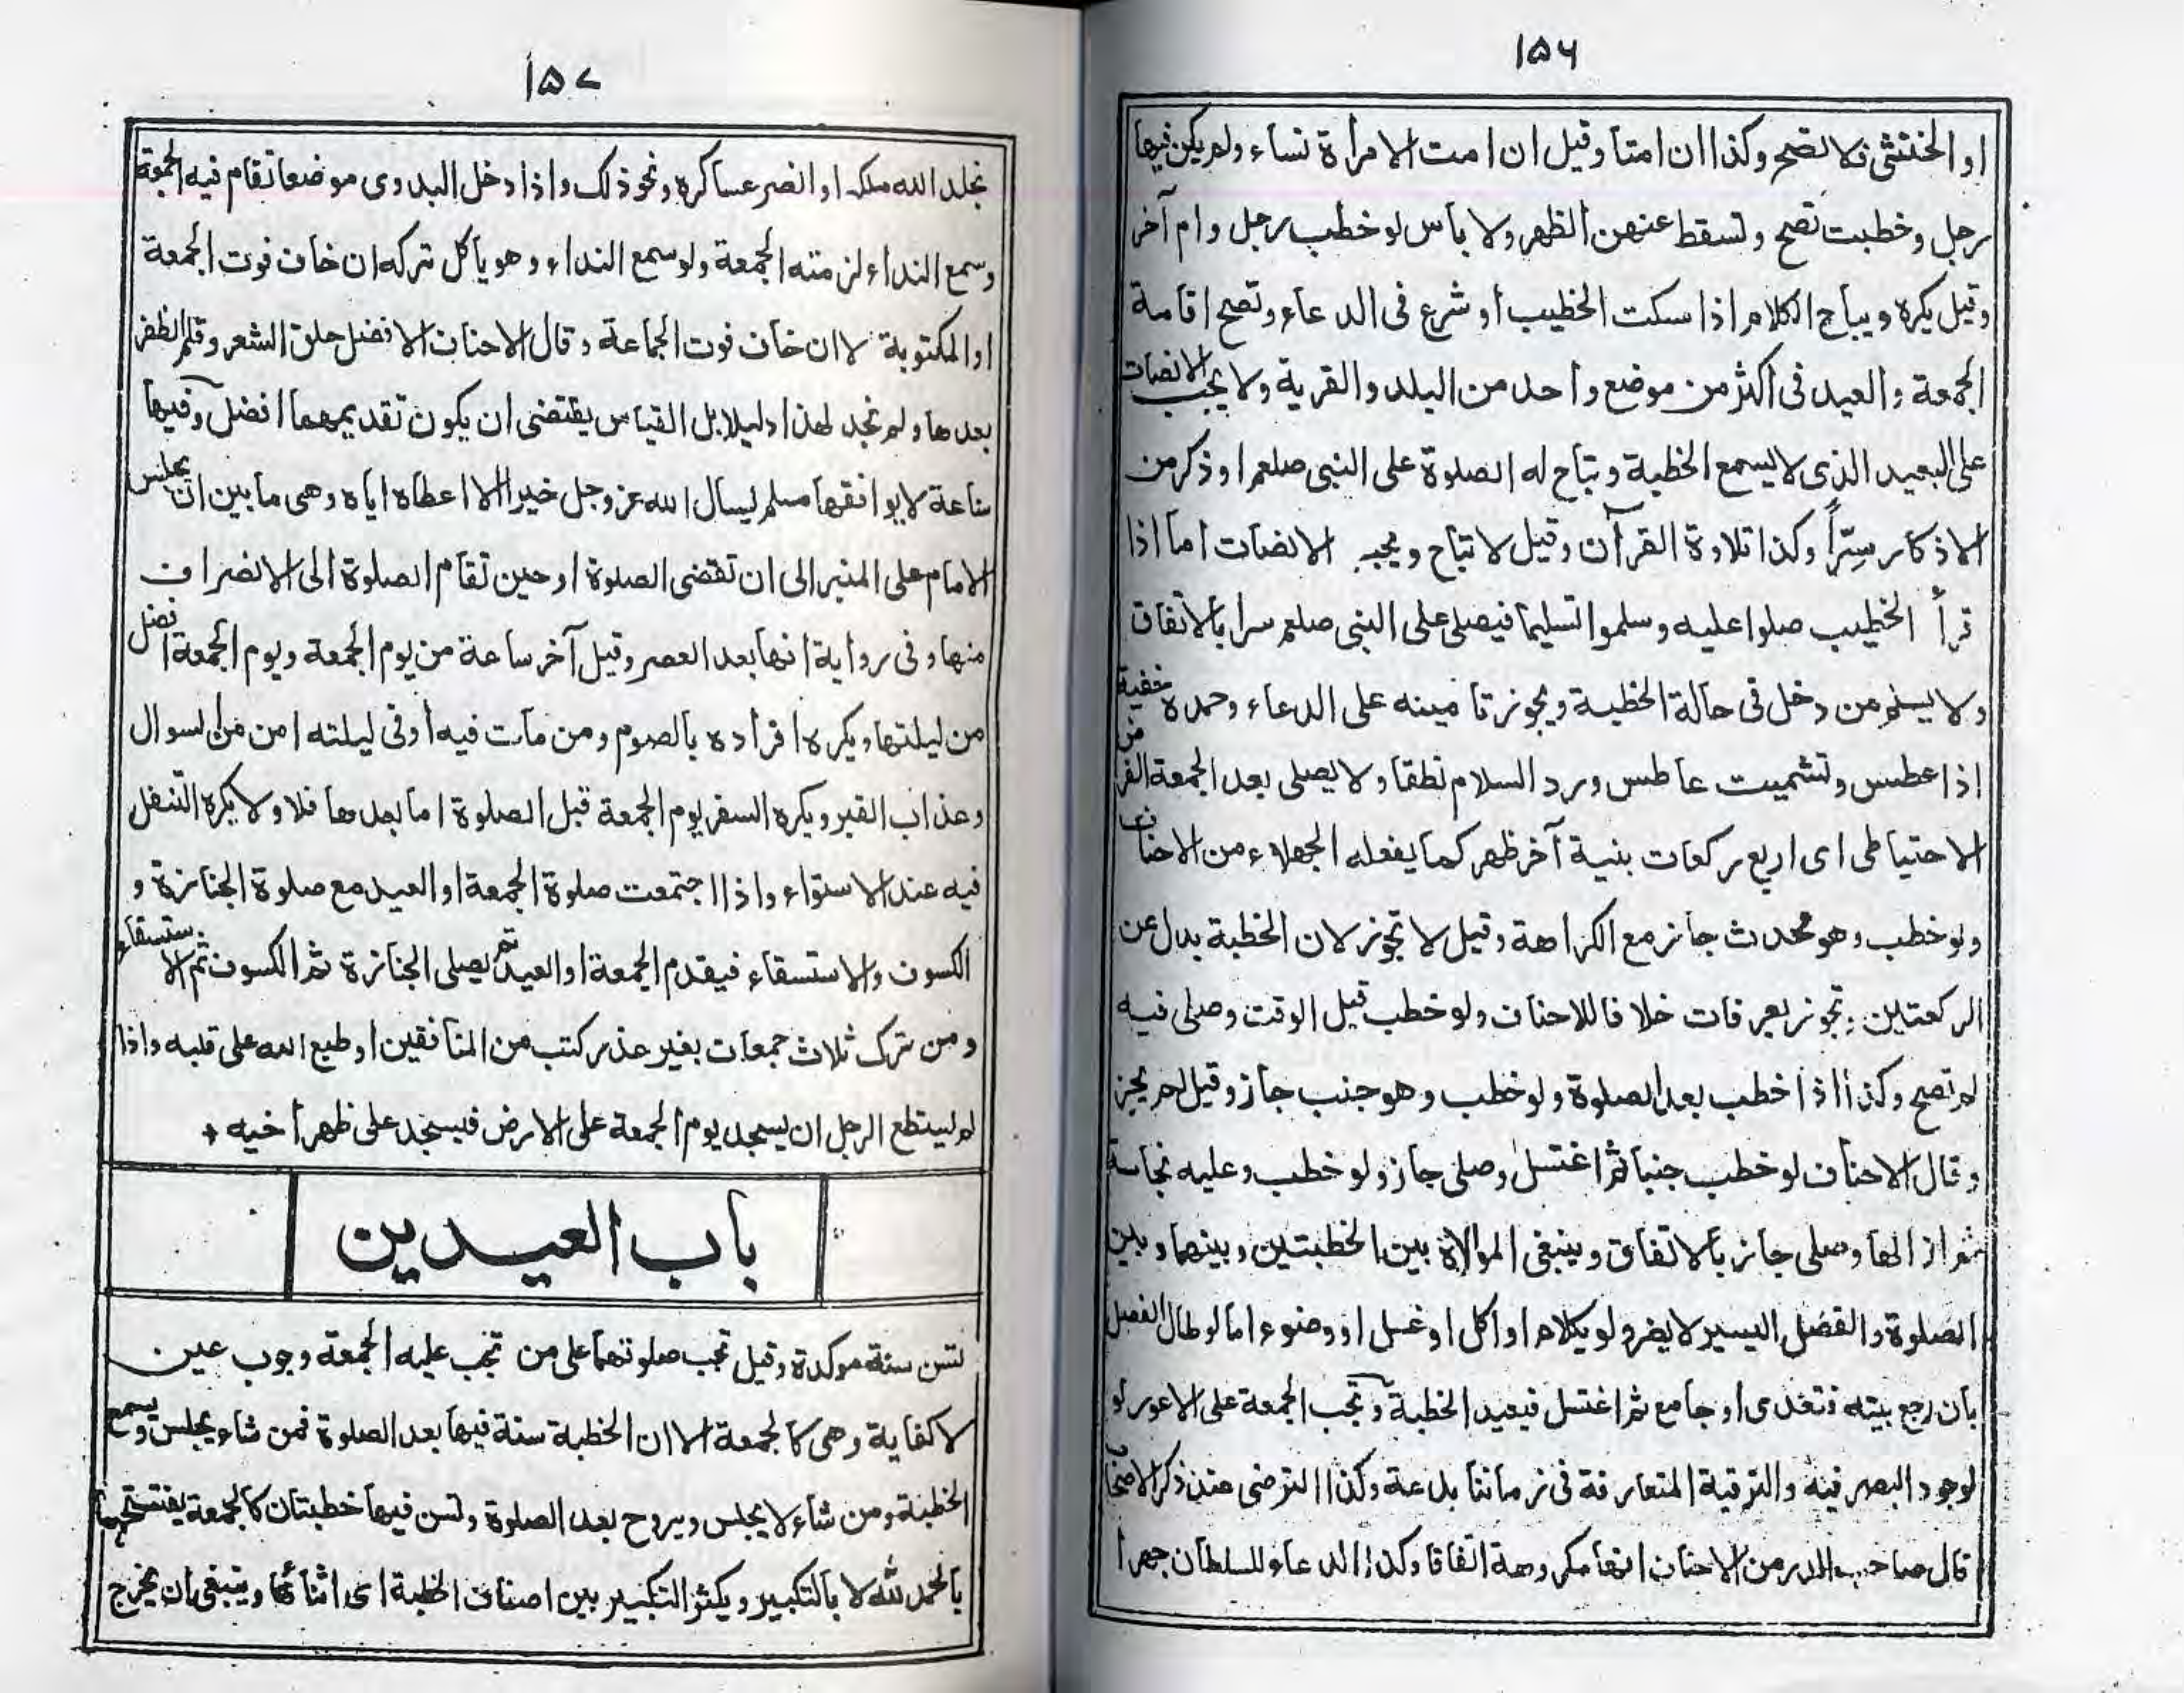 ١٥٦
او الخنثى فلا تصح وكذا ان امتا وقيل ان امت الامرأة نساء ولم يكن فيها
رجل وخطبت تصح وتسقط عنهن الظهر ولا بأس لو خطب رجل وام آخر
وقيل يكره ويباح الكلام اذا سكت الخطيب او شرع فى الدعاء وتصح اقامة
الجمعة والعيد فى اكثر من موضع واحد من البلد والقرية ولا يجب الانصات
على البعيد الذى لا يسمع الخطبة وتباح له الصلوة على النبى صلعم او ذكر من
الاذكار سِرّاً وكذا تلاوة القرآن وقيل لا تباح ويجب الانصات اما اذا
قرأ الخطيب صلوا عليه وسلموا تسليما فيصلى على النبى صلعم سرا بالاتفاق
ولا يسلم من دخل فى حالة الخطبة ويجوز تامينه على الدعاء وحمده خفية
اذا عطس وتشميت عاطس ورد السلام نطقا ولا يصلى بعد الجمعة الفرض
الاحتياطى اى اربع ركعات بنية آخر ظهر كما يفعله الجهلاء من الاحناف
ولو خطب وهو محدث جائز مع الكراهة وقيل لا تجوز لان الخطبة بدل عن
الركعتين وتجوز بعرفات خلافا للاحناف ولو خطب قبل الوقت وصلى فيه
لم تصح وكذا اذا خطب بعد الصلوة ولو خطب وهو جنب جاز وقيل لم يجز
وقال الاحناف لو خطب جنبا ثم اغتسل وصلى جاز ولو خطب وعليه نجاسة
ثم ازالها وصلى جائز بالاتفاق وينبغى الموالاة بين الخطبتين وبينهما وبين
الصلوة والفصل اليسير لا يضر ولو بكلام او اكل او غسل او وضوء اما لو طال الفصل
بان رجع بيته فتغدى او جامع ثم اغتسل فيعيد الخطبة وتجب الجمعة على الاعور لو
لوجود البصر فيه والترقية المتعارفة فى زماننا بدعة وكذا الترضى عند ذكر الاصحاب
قال صاحب الدر من الاحناف انها مكروهة اتفاقا وكذا الدعاء للسلطان جهرا
١٥٧
نخلد الله ملكه او انصر عساكره ونحو ذلك واذا دخل البدوى موضعا تقام فيه الجمعة
وسمع النداء لزمته الجمعة ولو سمع النداء وهو يأكل تركه ان خاف فوت الجمعة
او المكتوبة لا ان خاف فوت الجماعة وقال الاحناف الافضل حلق الشعر وقلم الظفر
بعدها ولم نجد لهذا دليلا بل القياس يقتضى ان يكون تقديمهما افضل وفيها
ساعة لا يوافقها مسلم ليسأل الله عز وجل خيرا الا اعطاه اياه وهى ما بين ان يجلس
الامام على المنبر الى ان تقضى الصلوة او حين تقام الصلوة الى الانصراف
منها وفى رواية انها بعد العصر وقيل آخر ساعة من يوم الجمعة ويوم الجمعة افضل
من ليلتها ويكره افراده بالصوم ومن مات فيه او فى ليلته امن من السوال
وعذاب القبر ويكره السفر يوم الجمعة قبل الصلوة اما بعدها فلا ولا يكره التنفل
فيه عند الاستواء واذا اجتمعت صلوة الجمعة او العيد مع صلوة الجنازة و
الكسوف والاستسقاء فيقدم الجمعة او العيد ثم يصلى الجنازة ثم الكسوف ثم الاستسقاء
ومن ترك ثلاث جمعات بغير عذر كتب من المنافقين او طبع الله على قلبه واذا
لم ليستطع الرجل ان يسجد يوم الجمعة على الارض فيسجد على ظهر اخيه
باب العيدين
تسن سنة موكدة وقيل تجب صلوتهما على من تجب عليه الجمعة وجوب عين
لا كفاية وهى كالجمعة الا ان الخطبة سنة فيها بعد الصلوة فمن شاء يجلس ويسمع
الخطبة ومن شاء لا يجلس ويروح بعد الصلوة وتسن فيها خطبتان كالجمعة يفتتحهما
بالحمد لله لا بالتكبير ويكثر التكبير بين اصناف الخطبة اى اثنائها وينبغى بان يخرج